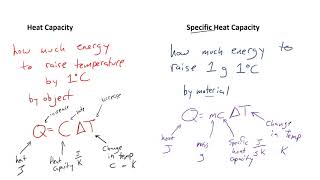 Heat Capacity
how much energy
to raise temperature
by 1°C
by object
increase
into
increase
Q = C ΔT
heat
J
Heat
Capacity
J/K
Change
in Temp
C = K
Specific Heat Capacity
how much energy to
raise 1 g 1°C
by material
Q = mcΔT
heat
J
mass
g
Specific
heat
capacity
J/g K
Change
in Temp
K